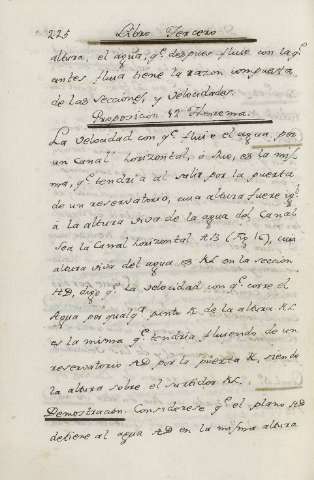 225 Libro Tercero
altura, el agua, q.e despues fluie con la q.e
antes fluia tiene la razon compuesta
de las secciones, y velocidades.
Proposicion 42 Theorema.
La velocidad con q.e fluie el agua por
un Canal horizontal, ó rivo, es la mis
ma, q.e tendria al salir por la puerta
de un reservatorio, cuia altura fuere ig.l
á la altura viva de la agua del Canal
sea la Canal horizontal AB (Fig 16), cuia
altura viva del agua es KL en la seccion
AD, digo q.e la velocidad con q.e corre el
Agua por qualq.a punto K de la altura KL
es la misma q.e tendria fluiendo de un
reservatorio AD por la puerta K, siendo
la altura sobre el surtidor KL.
Demostracion. Considerese q.e el plano AD
detiene al agua AD en la misma altura